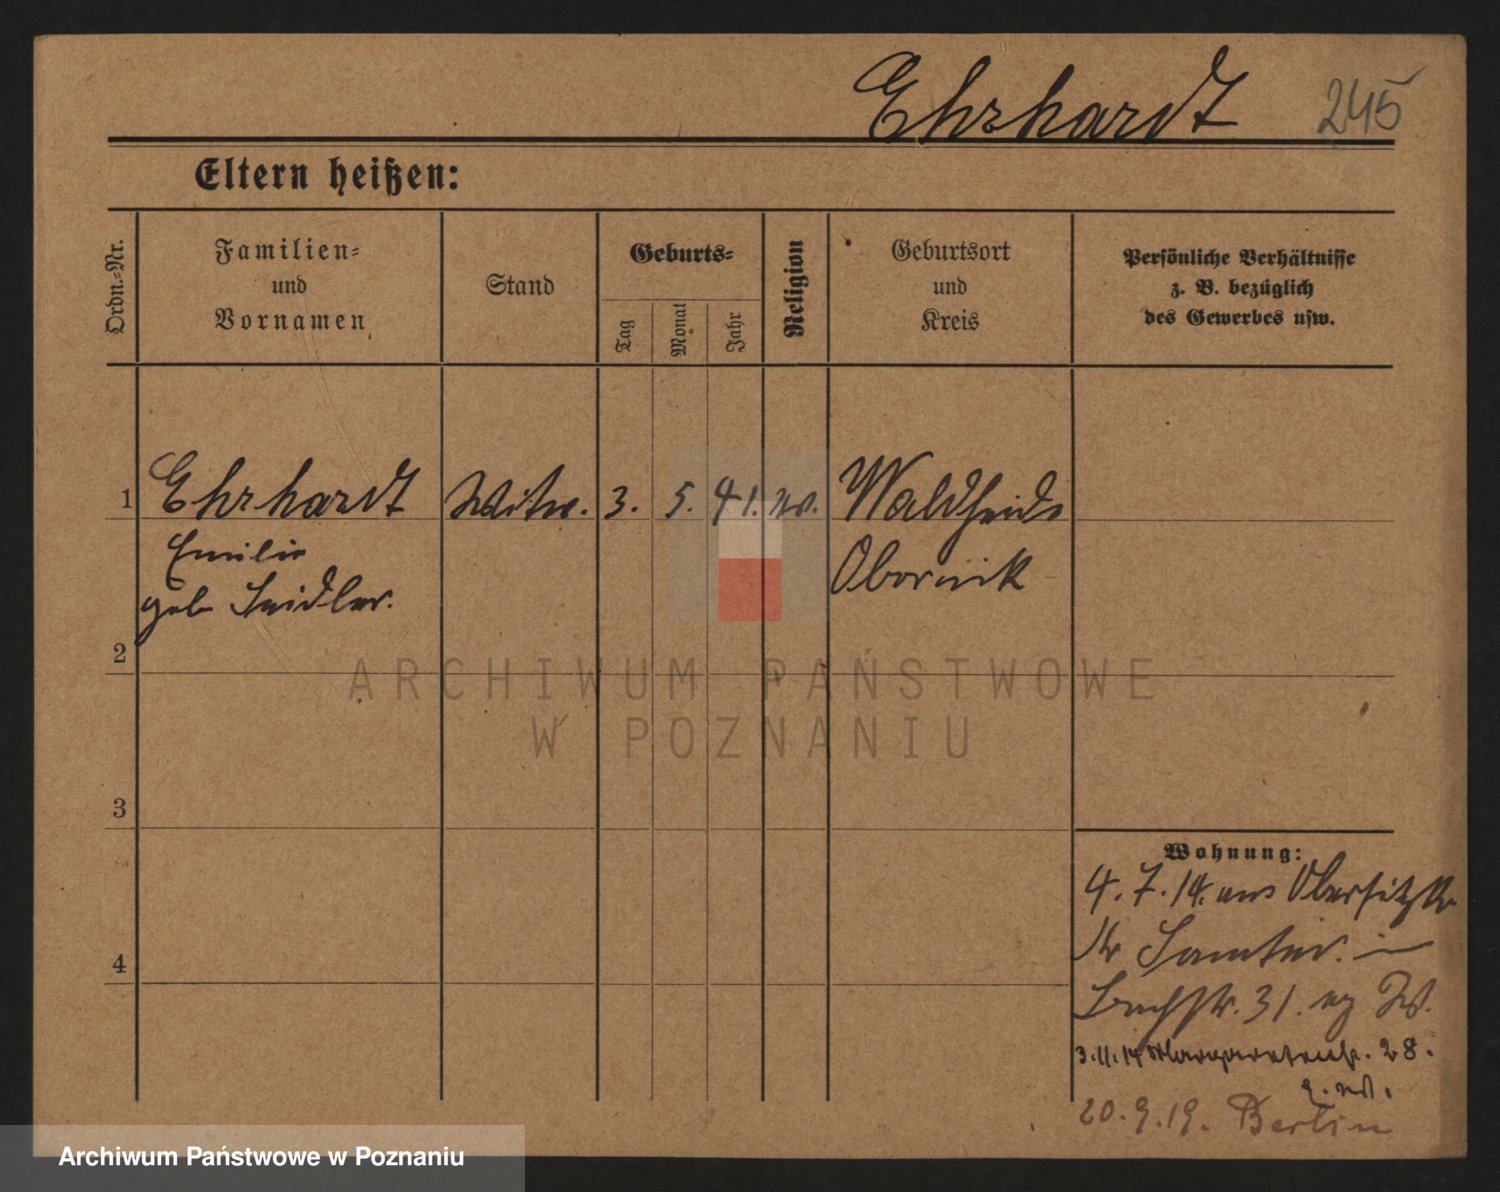 Ehrhardt 245
Eltern heißen:
Ordn.-Nr.
Familien-
und
Vornamen
Stand
Geburts-
Tag
Monat
Jahr
Religion
Geburtsort
und
Kreis
Persönliche Verhältnisse
z. B. bezüglich
des Gewerbes usw.
1 Ehrhardt Witw. 3. 5. 41. ev. Waldheide
Emilie Obornik
geb Seidler.
2
3
4
Wohnung:
4. 7. 14. aus Obersitzko
Kr Samter. in
31.
3.11.14 Margaretenstr. 28.
20.9.19. Berlin
ARCHIWUM PAŃSTWOWE
W POZNANIU
Archiwum Państwowe w Poznaniu